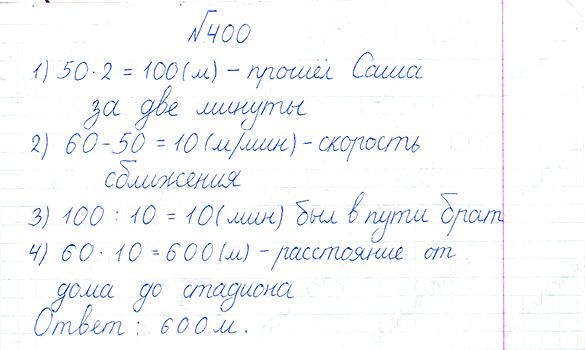 №400
1) 50·2 = 100 (м) – прошёл Саша
за две минуты
2) 60-50 = 10 (м/мин) – скорость
сближения
3) 100 : 10 = 10 (мин) был в пути брат
4) 60 · 10 = 600 (м) – расстояние от
дома до стадиона
Ответ : 600 м.